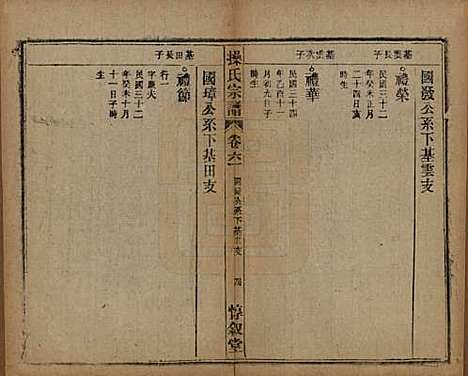 國發公系下基雲支
基雲長子
禮榮
民國三十二
年癸未正月
二十四日亥
時生
基雲次子
禮華
民國三十四
年乙酉十一
月初九日子
時生
操氏宗譜
卷六一
國璋公系下基田支
四
惇敍堂
國璋公系下基田支
基田長子
禮節
行一
字慶火
民國三十二
年癸未十月
十一日子時
生